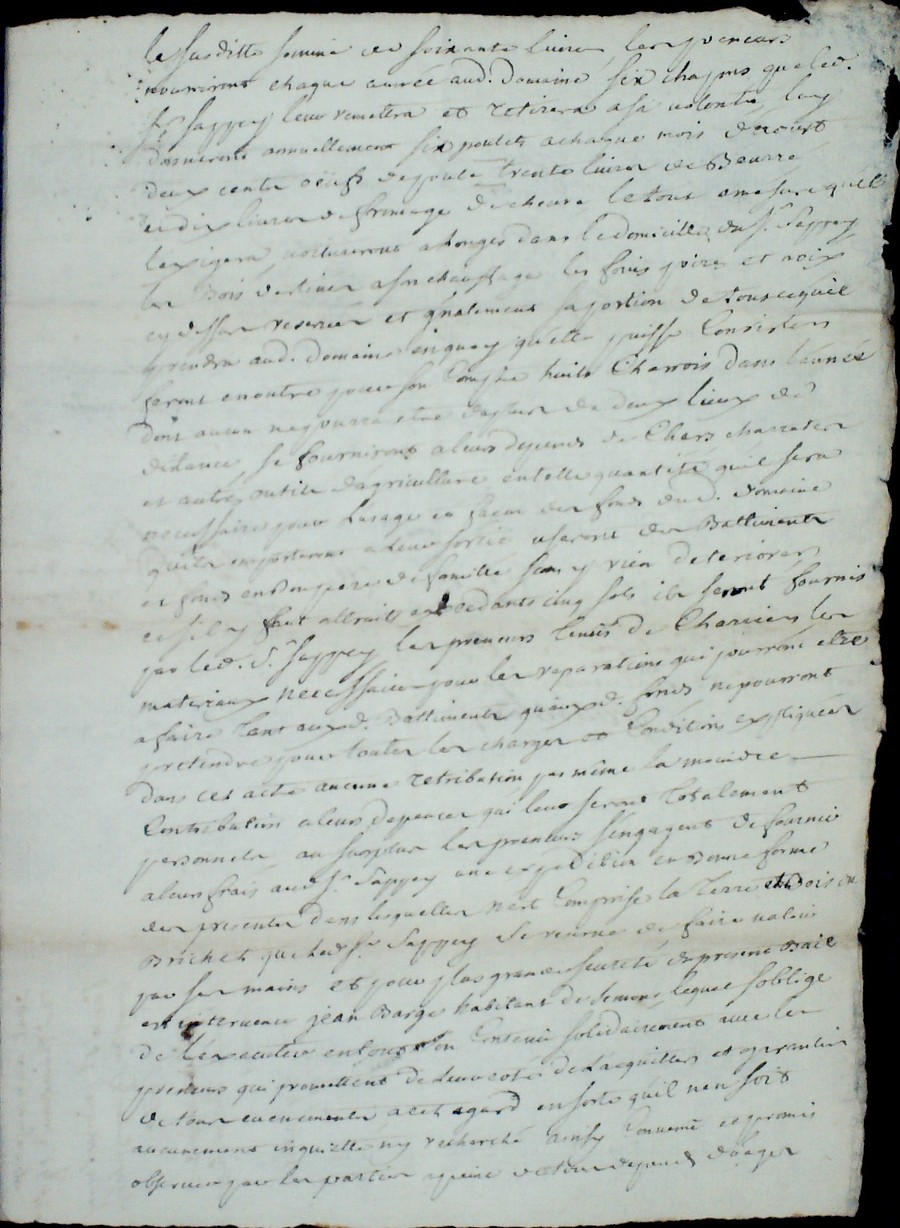 le susditte somme de soixante livres, les preneurs
nourriront chaque année aud. Domaine six chapons que led.
Sr. Sappey leur remettra et retirera a sa volonté, luy
donneront annuellement six poulets a chaque mois d'aoust
deux cents oeufs de poule trente livres de Beurre
et dix livres de fromage de chevre le tout a mesure quil
lexigera, voitureront a Longes dans le domicille du Sr. Sappey
les Bois destinés a son chauffage les foins poires et noix
cy dessus reservés et également sa portion de tout ce quil
prendra aud. Domaine en quoy quelle puisse Consister
feront en outre pour son Compte huit Charrois dans l'année
dont aucun ne pourra etre de plus de deux lieux de
distance, se fourniront a leurs depends de Chars charrettes
et autres outils dagriculture en telle quantité quil sera
necessaire pour lusage et des fonds dud. Domaine
quils emporteront a leur sortie useront des Battiments
et fonds en bon pere de famille sans y rien deteriorer,
et sil y faut attraits excedants cinq sols ils seront fournis
par led. Sr. Sappey les preneurs tenus de Charrier les
materiaux necessaires pour les reparations qui pourront etre
a faire tant auxd. Battiments quauxd. fonds ne pourront
pretendre pour toutes les charges et Conditions expliquées
dans cet acte aucune retribution pas même la moindre
Contribution a leurs depences qui leur seront totalement
personnels, au surplus les preneurs s'engagent de fournir
a leurs frais aud. Sr. Sappey une expedition en Bonne forme
des presentes dans lesquelles n'est Comprise la Terre et Bois du
Brichet que led. Sr. Sappey se reserve de faire valoir
par ses mains et pour plus grande seureté du present Bail
est intervenu jean Barge habitant de Semons, lequel soblige
de lexecuter en tout son Contenu solidairement avec les
preneurs qui promettent de leur coté de lacquitter et garantir
de tous evenements a cet egard en sorte quil nen soit
aucunement inquietté ny recherché ainsy Convenu et promis
observer par les parties a peine de tous depends domages